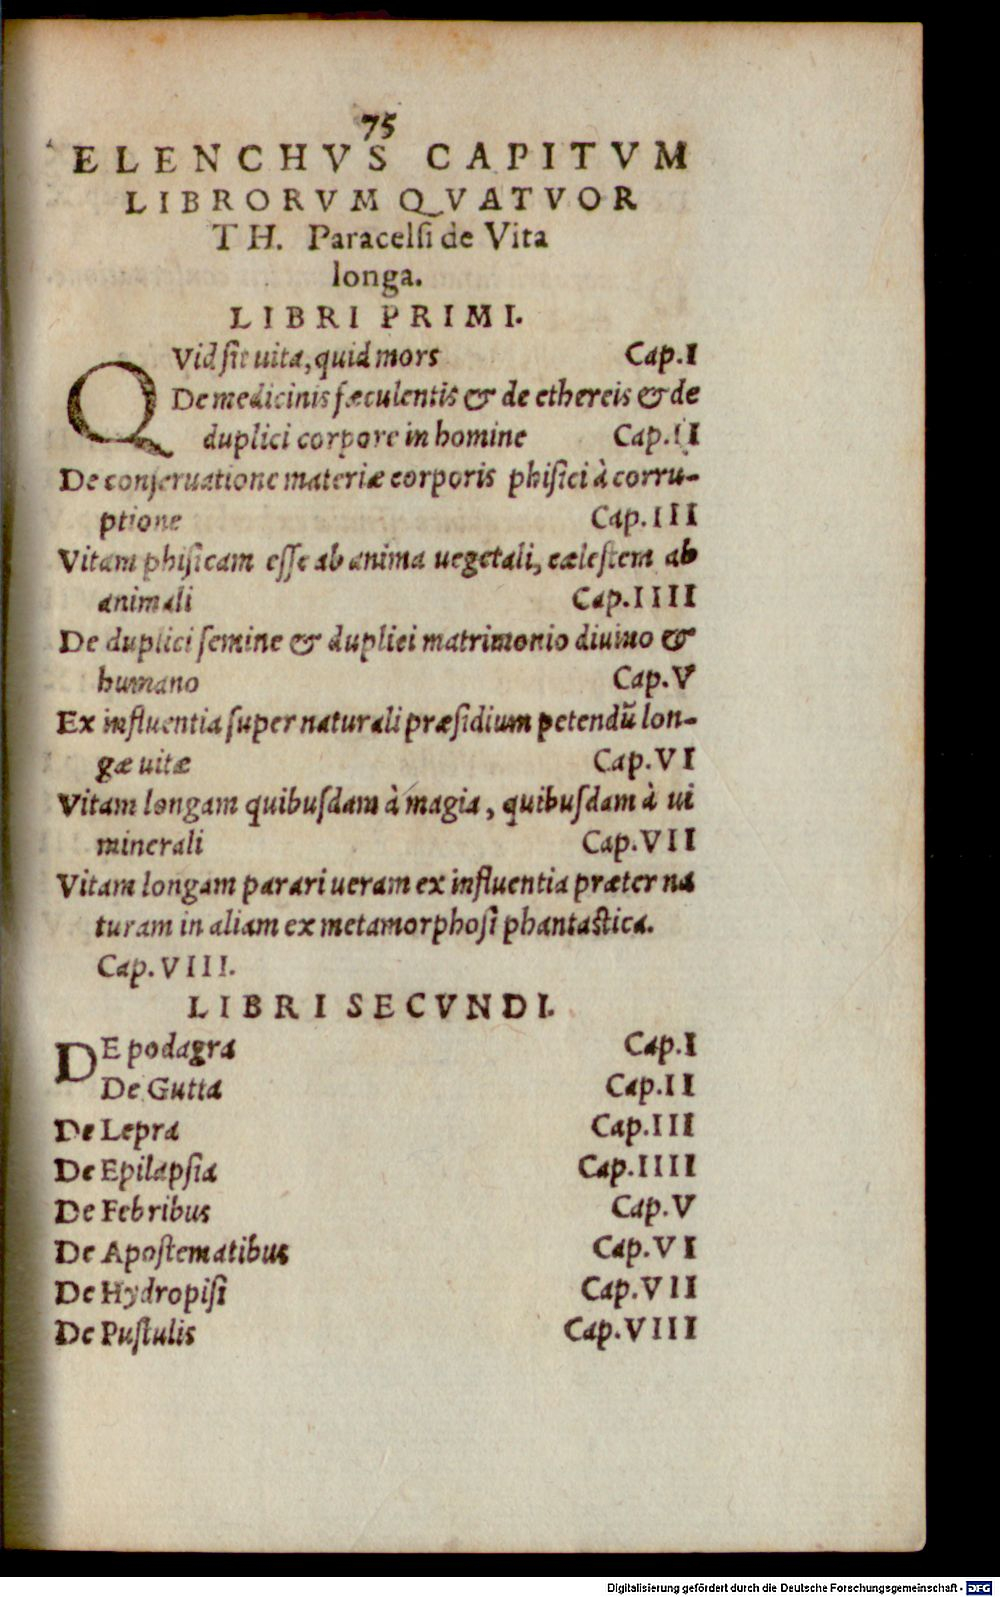 75
ELENCHVS CAPITVM
LIBRORVM QVATVOR
TH. Paracelſi de Vita
longa.
LIBRI PRIMI.
QVid ſit uita, quid mors Cap.I
De medicinis fæculentis & de ethereis & de
duplici corpore in homine Cap.II
De conſeruatione materiæ corporis phiſici à corru-
ptione Cap.III
Vitam phiſicam eſſe ab anima uegetali, cæleſtem ab
animali Cap.IIII
De duplici ſemine & duplici matrimonio diuino &
humano Cap.V
Ex influentia ſuper naturali præſidium petendũ lon-
gæ uitæ Cap.VI
Vitam longam quibuſdam à magia, quibuſdam à ui
minerali Cap.VII
Vitam longam parari ueram ex influentia præter na
turam in aliam ex metamorphoſi phantaſtica.
Cap.VIII.
LIBRI SECVNDI.
DE podagra Cap.I
De Gutta Cap.II
De Lepra Cap.III
De Epilapſia Cap.IIII
De Febribus Cap.V
De Apoſtematibus Cap.VI
De Hydropiſi Cap.VII
De Puſtulis Cap.VIII
Digitalisierung gefördert durch die Deutsche Forschungsgemeinschaft - DFG